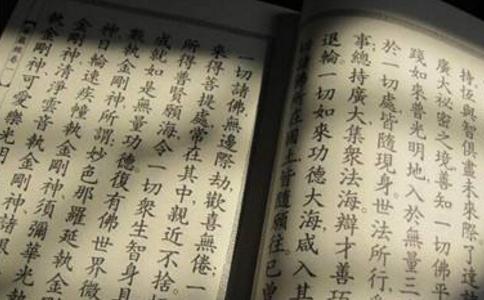 持，恆與智俱，盡未來際。了達諸
廣大秘密之境，善知一切佛平
踐如來普光明地，入於無量三
於一切處，皆隨現身，世法所行，
事。總持廣大，集眾法海，辯才善巧
退輪。一切如來功德大海，咸入其
切諸佛所在國土，皆隨願往。已曾
一切諸佛，無邊際劫，歡喜無倦。一
來得菩提處，常在其中，親近不捨。
所得普賢願海，令一切眾生智身具
成就如是無量功德。復有佛世界微
數執金剛神，所謂：妙色那羅延執金
神、日輪速疾幢執金剛神、須彌華光執
金剛神、清淨雲音執金剛神、諸根
執金剛神、可愛樂光明